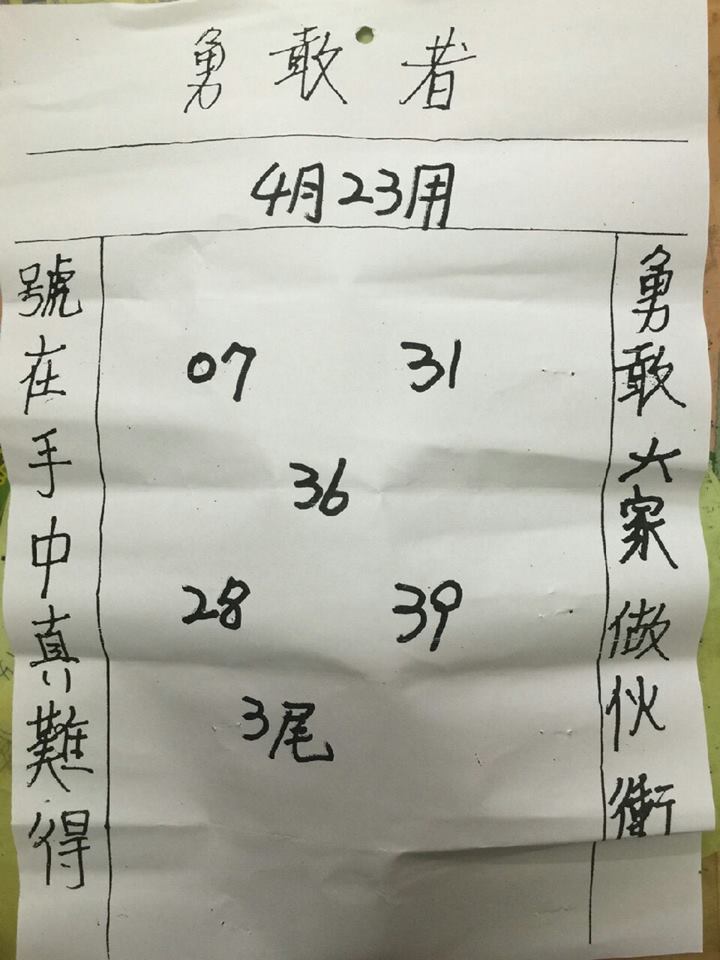 勇敢者
4月23用
勇敢大家做伙衝
07 31
36
28 39
3尾
號在手中真難得